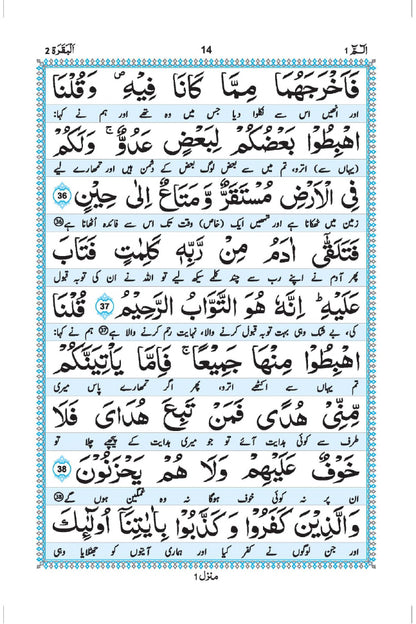 الٓمّٓ 1 14 اَلْبَقَرَة 2
فَاَخْرَجَهُمَا مِمَّا كَانَا فِيْهِ ۪ وَ قُلْنَا
اور انھیں اس سے نکلوا دیا جس میں وہ تھے اور ہم نے کہا:
اهْبِطُوْا بَعْضُكُمْ لِبَعْضٍ عَدُوٌّ ۚ وَ لَكُمْ
(یہاں سے) اترو، تم میں سے بعض لوگ بعض کے دشمن ہیں اور تمھارے لیے
فِي الْاَرْضِ مُسْتَقَرٌّ وَّ مَتَاعٌ اِلٰى حِيْنٍ 36
زمین میں ٹھکانا ہے اور تمھیں ایک (خاص) وقت تک اس سے فائدہ اٹھانا ہے 36
فَتَلَقّٰۤى اٰدَمُ مِنْ رَّبِّهٖ كَلِمٰتٍ فَتَابَ
پھر آدم نے اپنے رب سے چند کلمے سیکھ لیے تو اللہ نے ان کی توبہ قبول
عَلَيْهِ ؕ اِنَّهٗ هُوَ التَّوَّابُ الرَّحِيْمُ 37 قُلْنَا
کی، بے شک وہی بہت توبہ قبول کرنے والا، نہایت رحم کرنے والا ہے 37 ہم نے کہا:
اهْبِطُوْا مِنْهَا جَمِيْعًا ۚ فَاِمَّا يَاْتِيَنَّكُمْ
تم یہاں سے اکٹھے اترو، پھر اگر تمھارے پاس میری
مِّنِّيْ هُدًى فَمَنْ تَبِعَ هُدَايَ فَلَا
طرف سے کوئی ہدایت آئے تو جو میری ہدایت کے پیچھے چلا تو
خَوْفٌ عَلَيْهِمْ وَ لَا هُمْ يَحْزَنُوْنَ 38
ان پر نہ کوئی خوف ہوگا نہ وہ غمگین ہوں گے 38
وَ الَّذِيْنَ كَفَرُوْا وَ كَذَّبُوْا بِاٰيٰتِنَاۤ اُولٰٓىِٕكَ
اور جن لوگوں نے کفر کیا اور ہماری آیتوں کو جھٹلایا وہی
منزل 1